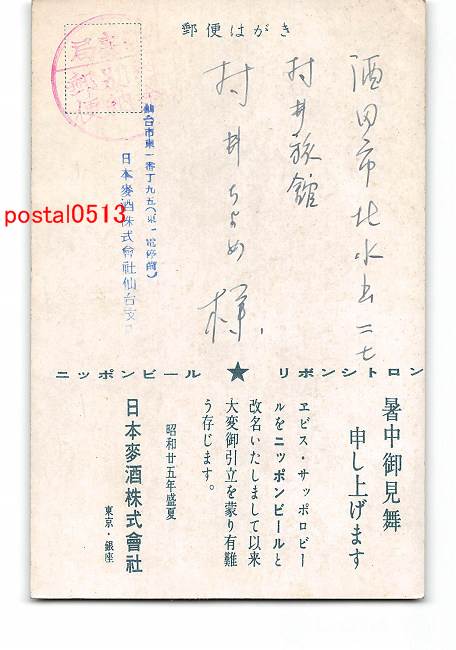 郵便はがき
酒田市北水出二七
村井旅館
村井ちよめ様
仙台市東一番丁九五(東一電停前)
日本麥酒株式會社仙台支
postal0513
ニッポンビール ★ リボンシトロン
暑中御見舞
申し上げます
ヱビス・サッポロビー
ルをニッポンビールと
改名いたしまして以来
大変御引立を蒙り有難
う存じます。
昭和廿五年盛夏
日本麥酒株式會社
東京・銀座